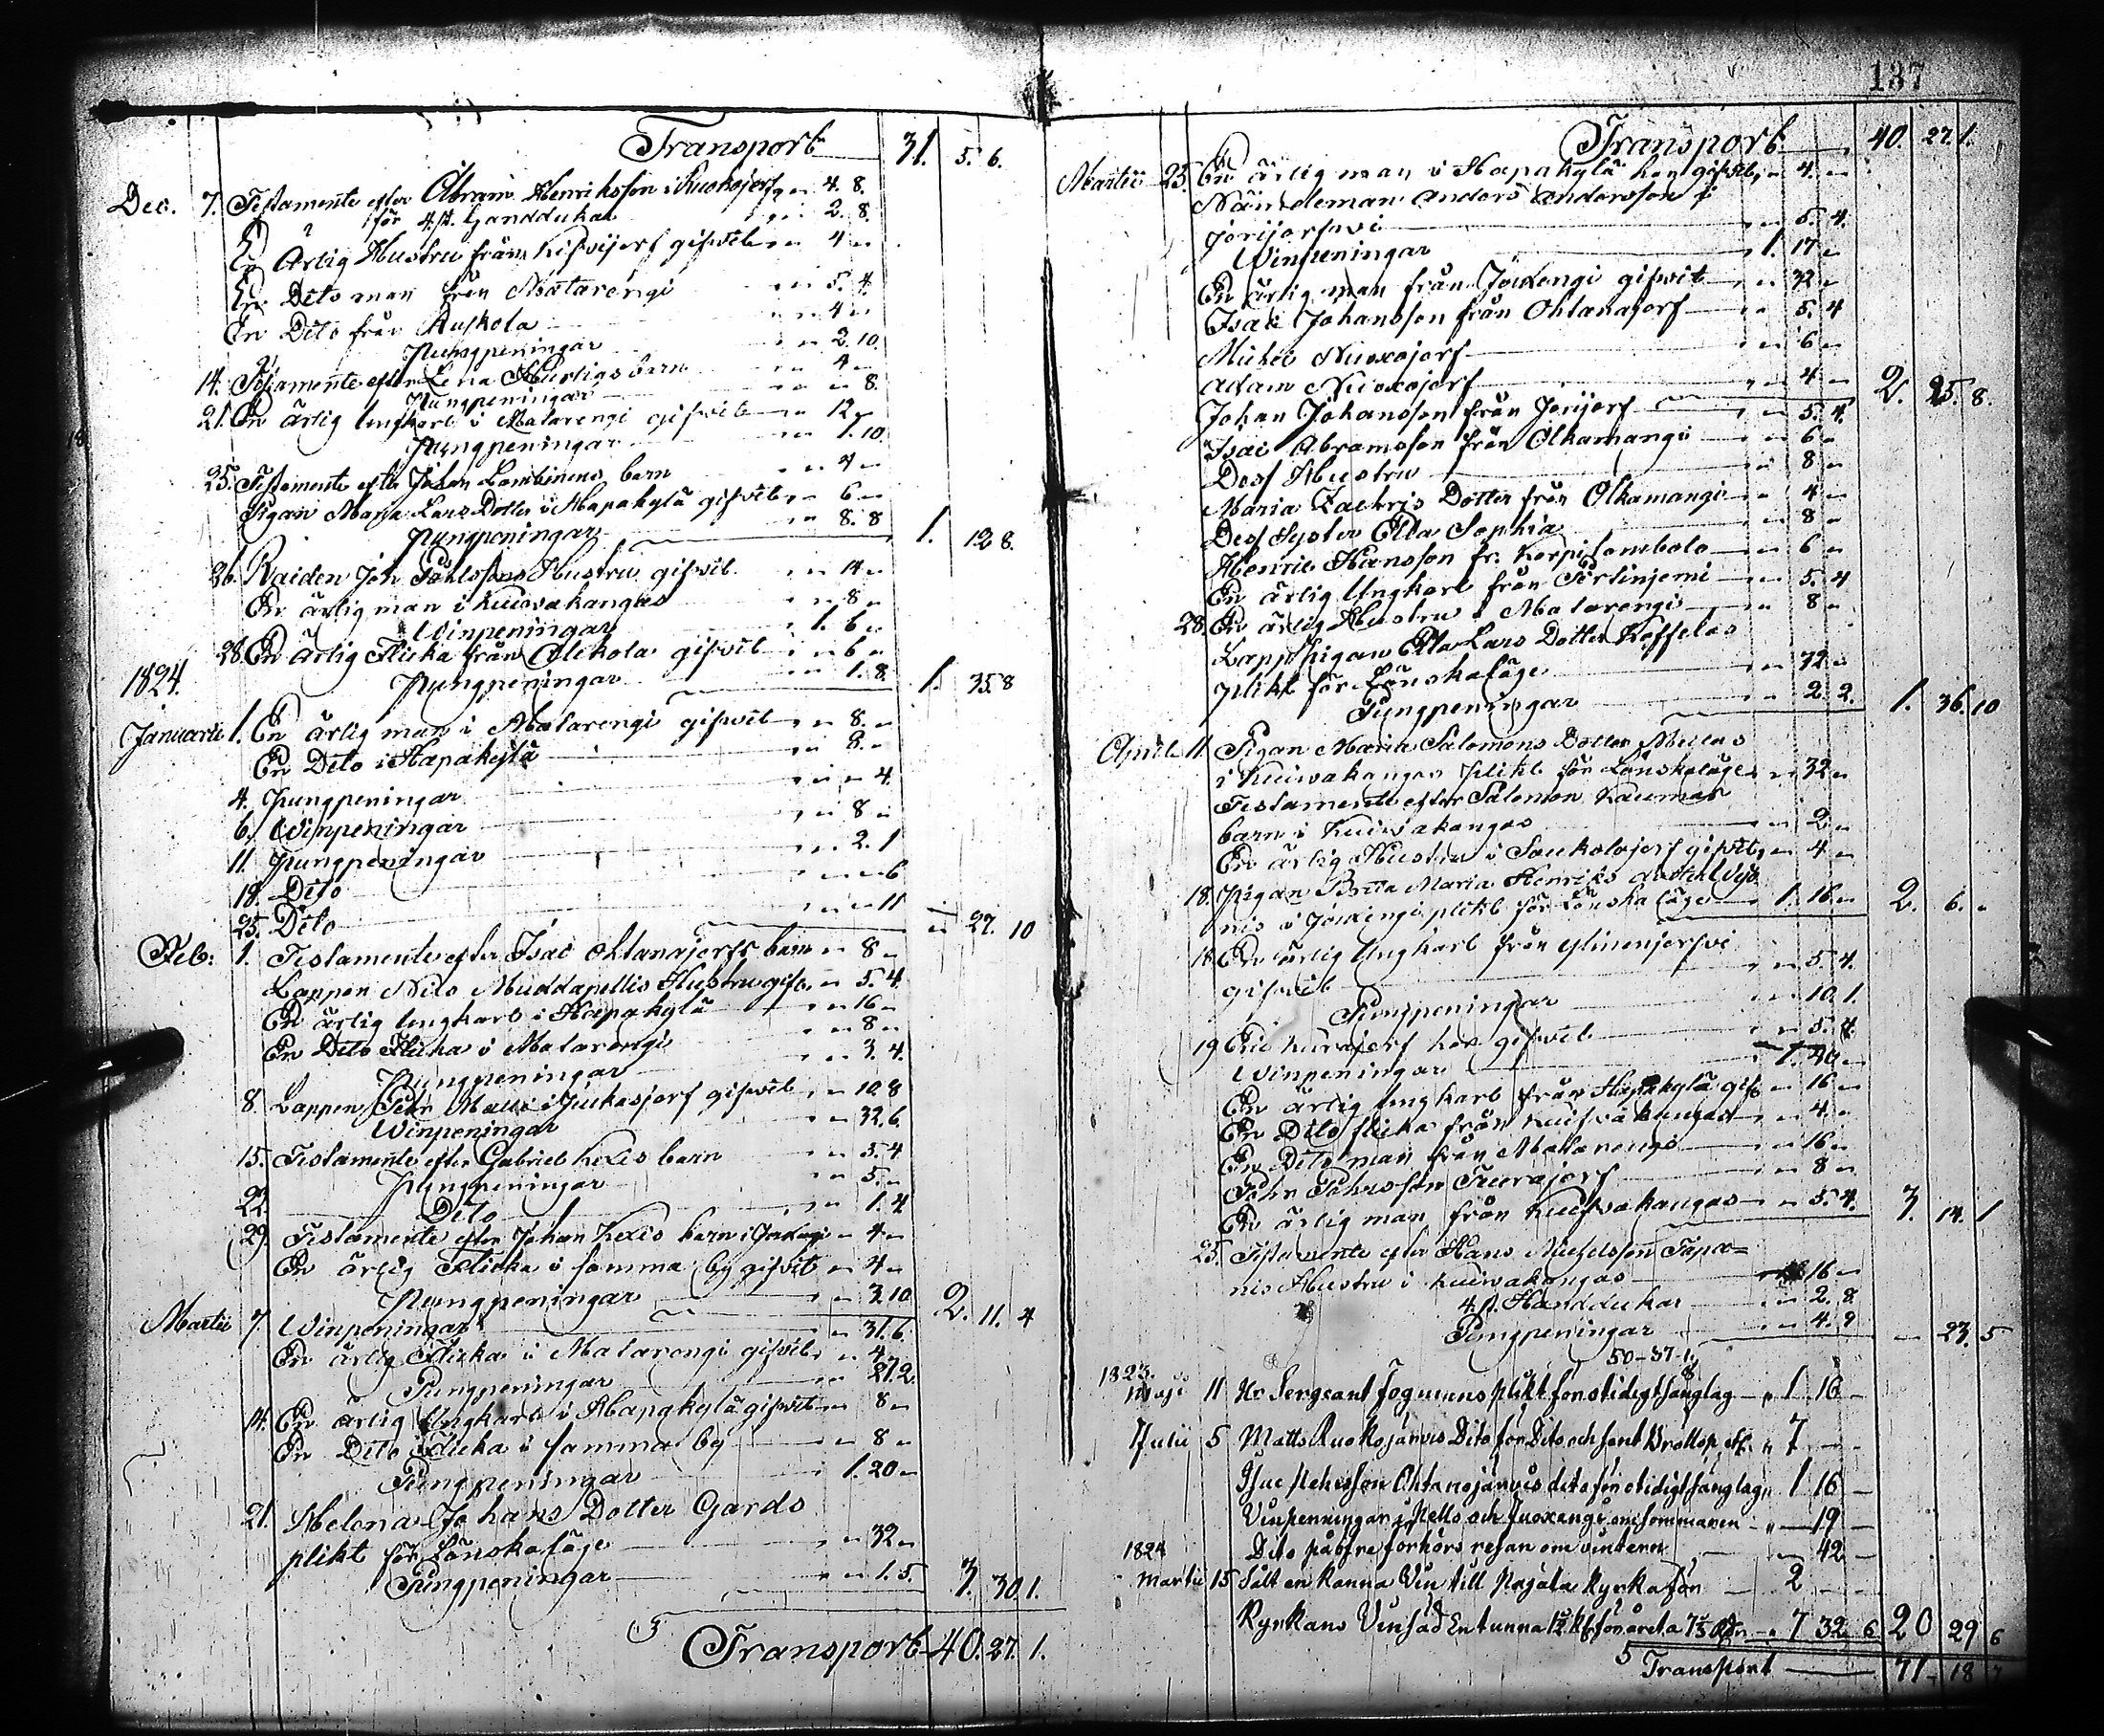 Transport 31. 5. 6.
Dec. 7. Testamente efter Abram Henriksson i Ruokojerf „ „ 4. 8.
för 4 st. Handdukar „ „ 2. 8.
En Ärlig Hustru från gifvit „ „ 4 „
En Dito man från Matarengi „ „ 5. 4.
En Dito från Ruskola „ „ 4 „
Pungpeningar „ „ 2. 10.
14. Testamente efter Lena barn „ „ 4 „
Pungpeningar „ „ „ 8.
21. En ärlig Ungkarl i Matarengi gifvit „ „ 12 „
Pungpeningar „ „ 1. 10.
25. Testamente efter Johan barn „ „ 4 „
Pigan Maja Lars Dotter i Hapakylä gifvit „ „ 6 „
Pungpeningar „ „ 8. 8 1. 12 8.
26. Raiden Joh Påhlssons Hustru gifvit „ „ 14 „
En ärlig man i Kuiwakangas „ „ 8 „
Winpeningar „ 1. 6 „
28. En Ärlig Flicka från Alkola gifvit „ „ 6 „
1824.
Pungpeningar „ „ 1. 8. 1. 35 8
Januarii 1. En ärlig man i Matarengi gifvit „ „ 8. „
En Dito i Hapakylä „ „ 8. „
4. Pungpeningar „ „ „ 4.
6. Winpeningar „ „ 8 „
11. Pungpeningar „ „ 2. 1
18. Dito „ „ „ 6
25. Dito „ „ „ 11 „ 27. 10
Feb: 1. Testamente efter Isac Ohtanajerfs barn „ „ 8 „
Lappen Nils Muddapellis Hustru gifv. „ „ 5. 4.
En ärlig Ungkarl i Hapakylä „ „ 16 „
En Dito Flicka i Matarengi „ „ 8 „
Pungpeningar „ „ 3. 4.
8. Lappen Pehr i Juckasjerf gifvit „ „ 10. 8
Winpeningar „ „ 32. 6.
15. Testamente efter Gabriel Kexis barn „ „ 5. 4
Pungpeningar „ „ 5. „
22. Dito „ „ 1. 4
29. Testamente efter Johan Kexis barn i „ 4 „
En ärlig Flicka i samma by gifvit „ „ 4 „
Pungpeningar „ „ 3. 10 2. 11. 4
Martii 7. Winpeningar „ „ 31. 6.
En ärlig Flicka i Matarengi gifvit „ „ 4 „
Pungpeningar „ „ 21. 2
14. En ärlig Ungkarl i Hapakylä gifvit „ „ 8 „
En Dito Flicka i samma by „ „ 8 „
Pungpeningar „ 1. 20 „
21. Helena Johans Dotter Gards
plikt för Lönskaläge „ „ 32 „
Pungpeningar „ „ 1. 5. 3. 30. 1.
Transport 40. 27. 1.
137
Transport 40. 27. 1.
Martii 25. En ärlig man i Hapakylä har gifvit „ „ 4. „
Nämdeman Anders Andersson i
Jerijerfwi „ „ 5. 4.
Winpeningar „ 1. 17 „
En ärlig man från Jouxengi gifvit „ „ 32 „
Isac Johansson från Ohtanajerf „ „ 5. 4
Michel Nuoxojerf „ „ 6 „
Adam Nuoxojerf „ „ 4 „ 2. 25. 8.
Johan Johansson från Jerijerf „ „ 5. 4.
Isac Abramsson från Olkamangi „ „ 6 „
Dess Hustru „ „ 8 „
Maria Zachris Dotter från Olkamangi „ „ 4 „
Dess Syster Ella Sophia „ „ 8 „
Henric Hansson fr. Korpisombolo „ „ 6 „
En ärlig Ungkarl från Törtinjemi „ „ 5. 4
28. En ärlig Hustru i Matarengi „ „ 8 „
Lappsigan Ella Lars Dotter Koffelas
plikt för Lönskaläge „ „ 72 „
Pungpeningar „ „ 2. 2. 1. 36. 10
April 11. Pigan Maria Salomons Dotter
i Kuiwakangas plikt för Lönskaläge „ „ 32 „
Testamente efter Salomon
barn i Kuiwakangas „ „ 2 „
En ärlig Hustru i gifvit „ „ 4 „
18. Pigan Brita Maria Henriks
nis i Jouxengi plikt för Lönskaläge „ 1. 16 „ 2. 6. „
18. En ärlig Ungkarl från
gifvit „ „ 5. 4.
Pungpeningar „ „ 10. 1.
19 Eric har gifvit „ „ 5. 4.
Winpeningar „ 1. 40 „
En ärlig Ungkarl från Hapakylä gif. „ „ 16 „
En Dito flicka från Kuifvakangas „ „ 4. „
En Dito man från Matarengi „ „ 16 „
Pehr Pehrsson „ „ 8 „
En ärlig man från Kuifvakangas „ „ 5. 4. 3. 14. 1
25. Testamente efter Hans Michelsson Tapa=
nis Hustru i Kuiwakangas „ „ 16 „
4 st. Handdukar „ „ 2. 8.
Pungpeningar „ „ 4. 9 „ 23. 5
50-37-1.
1823.
Maji 11 Hr Sergeant plikt för otidigt sänglag „ 1 16 –
Julii 5 Matts Ruokojärvis Dito för Dito och „ 7 – –
Isac Pehrsson Ohtanajärvis dito för otidigt sänglag „ 1 16 –
Vinpenningar i Pello och Juoxengi om sommaren „ – 19 –
1824 Dito på öfre förhörs resan om vintern „ – 42 –
Martii 15 Sålt en kanna Vin till Pajala Kyrka för 2 – –
Kyrkans En tunna 7 32 6 20 29 6
Transport 71 18 7